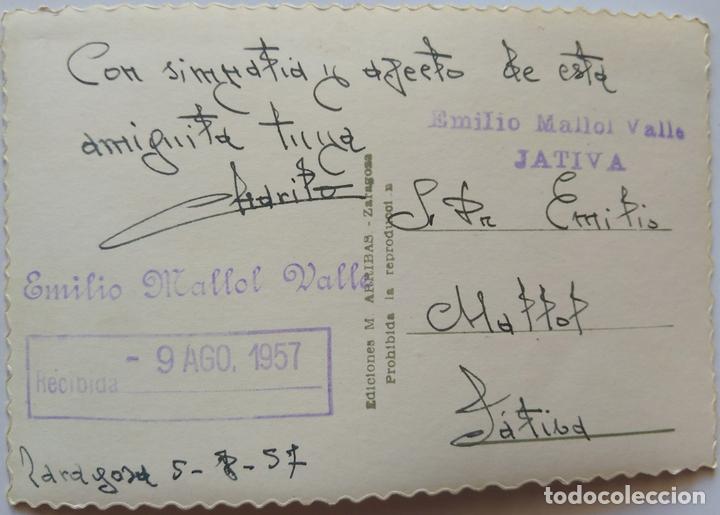 Con simpatia y afecto de esta
amiguita tuya
Emilio Mallol Valle
Recibida - 9 AGO. 1957
Zaragoza 5-8-57
Ediciones M ARRIBAS - Zaragoza
Prohibida la reproducción
Emilio Mallol Valle
JATIVA
S. Dn Emilio
Mallol
Játiva
todocoleccion.net